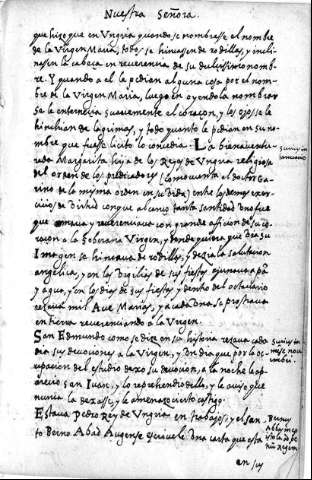 Nuestra Señora.
que hizo que en Vngria quando se nombrasse el nombre
de la Virgen Maria, todos se hincasen de rodillas, y incli
nasen la cabeça en reverencia de su dulcissimo nom
bre. Y quando a el le pedian alguna cosa por el nom
bre de la Virgen Maria, luego en oyendola nombrar
se le enternecia suavemente el coraçon, y los ojos se le
hinchian de lagrimas, y todo quanto le pedian en su no
mbre que fuesse licito lo concedia. La bienaventu
rada Margarita hija de los Reyes de Vngria religiosa
del orden de los predicadores (como cuenta el doctor Ga
rino de la misma orden en su vida) entre los demas exer
cicios de virtud con que alcanço tanta santidad uno fue
que amava y reverenciava con grande aficion de su co
raçon a la soberana Virgen, y donde quiera que via su
Imagen se hincava de rodillas, y dezia la salutacion
angelica, y en las vigilias de sus fiestas ayunava a pã
y agua, y en los dias de sus fiestas y dentro del octavario
rezava mil Ave Marias, y a cada una se prostrava
en tierra reverenciando a la Virgen.
San Edmundo como se dize en su historia rezava cada
dia sus devociones a la Virgen, y un dia que por la oc
upacion del estudio dexo su devocion, a la noche le apa
recio san Juan, y lo reprehendio dello, y le aviso que
nunca la dexasse, y le amenazo cierto castigo.
Estava Pedro Rey de Vngria en trabajos, y el san
to Berno Abad Augense escrivele una carta que esta
en su